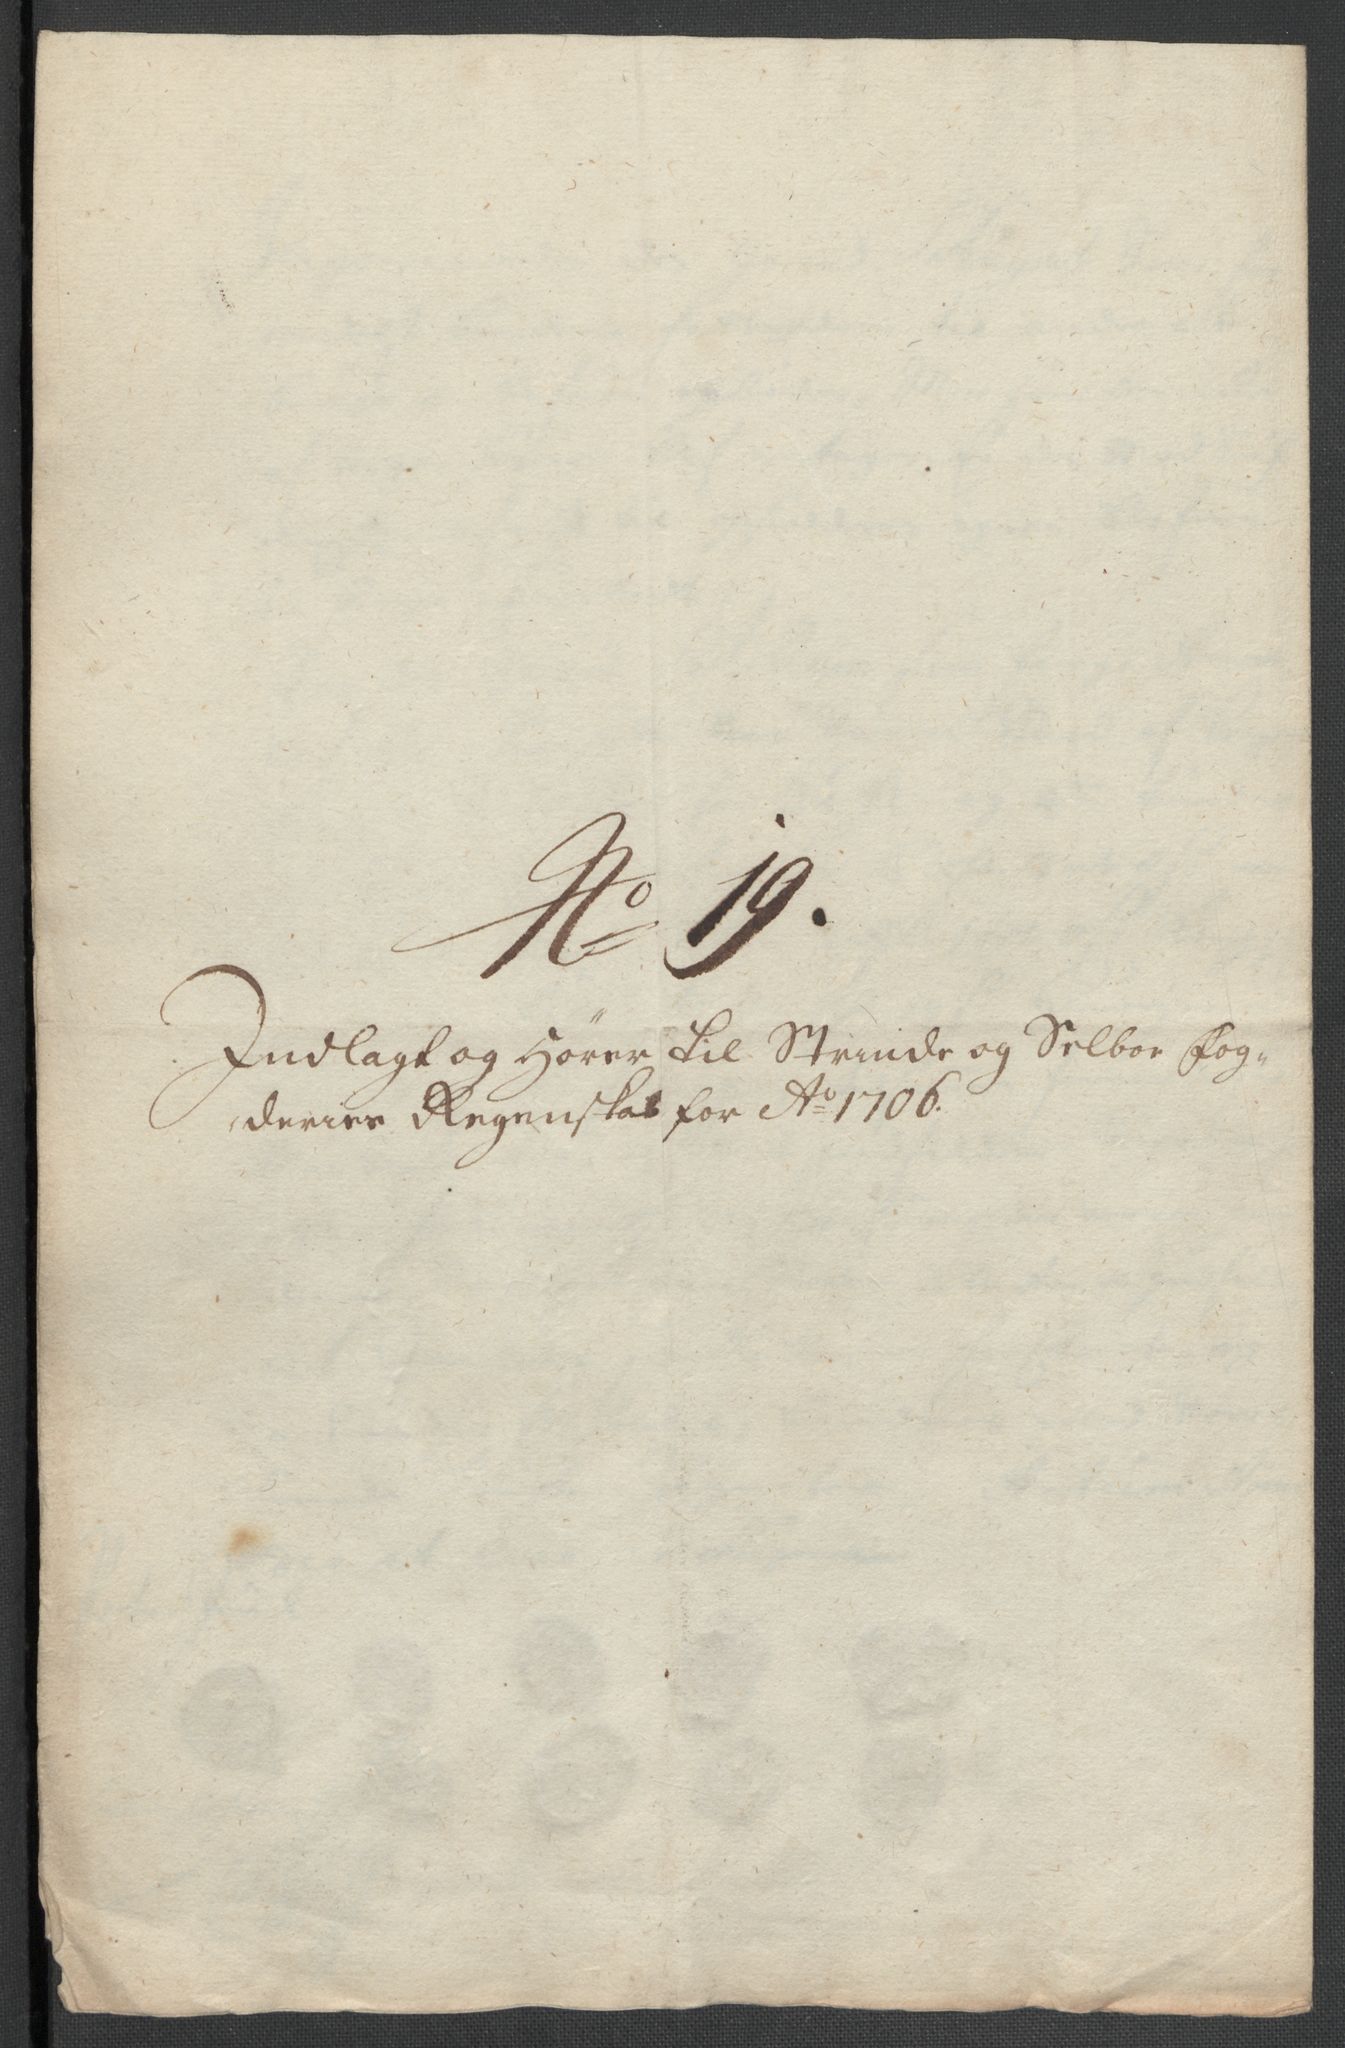 No 19.
Indlagt og Hører til Strinde og Selboe Fog-
deries Regenskab for Ao 1706.